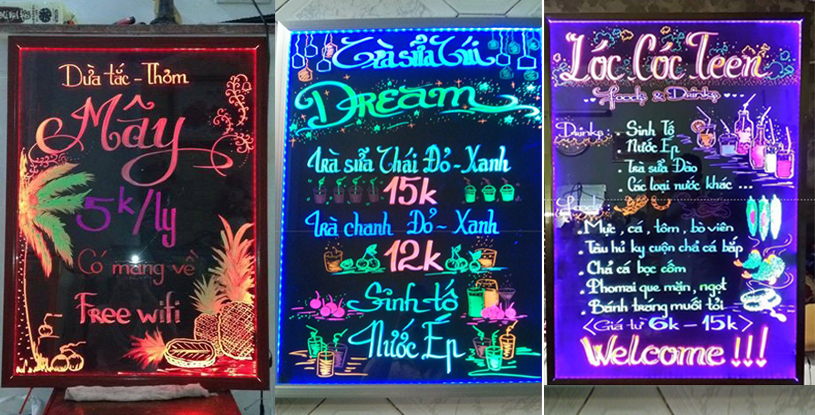 Dừa tắc - Thơm
Mây
5k/ly
Có mang về
Free wifi
Trà sữa Túi
DREAM
Trà sữa Thái Đỏ - Xanh
15k
Trà chanh Đỏ - Xanh
12k
Sinh tố
Nước Ép
Lóc Cóc Teen
Foods & Drinks
Drinks:
. Sinh Tố
. Nước Ép
. Trà sữa Dâo
. Các loại nước khác ...
Foods:
. Mực, cá, tôm, bò viên
. Tàu hủ ky cuộn chả cá bắp
. Chả cá bọc cốm
. Phomai que mặn, ngọt
. Bánh tráng muối tỏi
<Giá từ 6k - 15k>
Welcome !!!